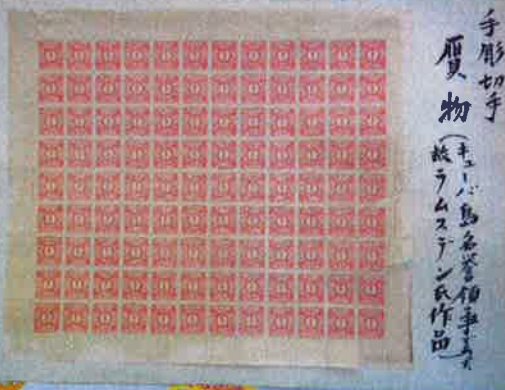 手彫切手
贋物
(キューバ島名誉領事
故ラムスデン氏作品)